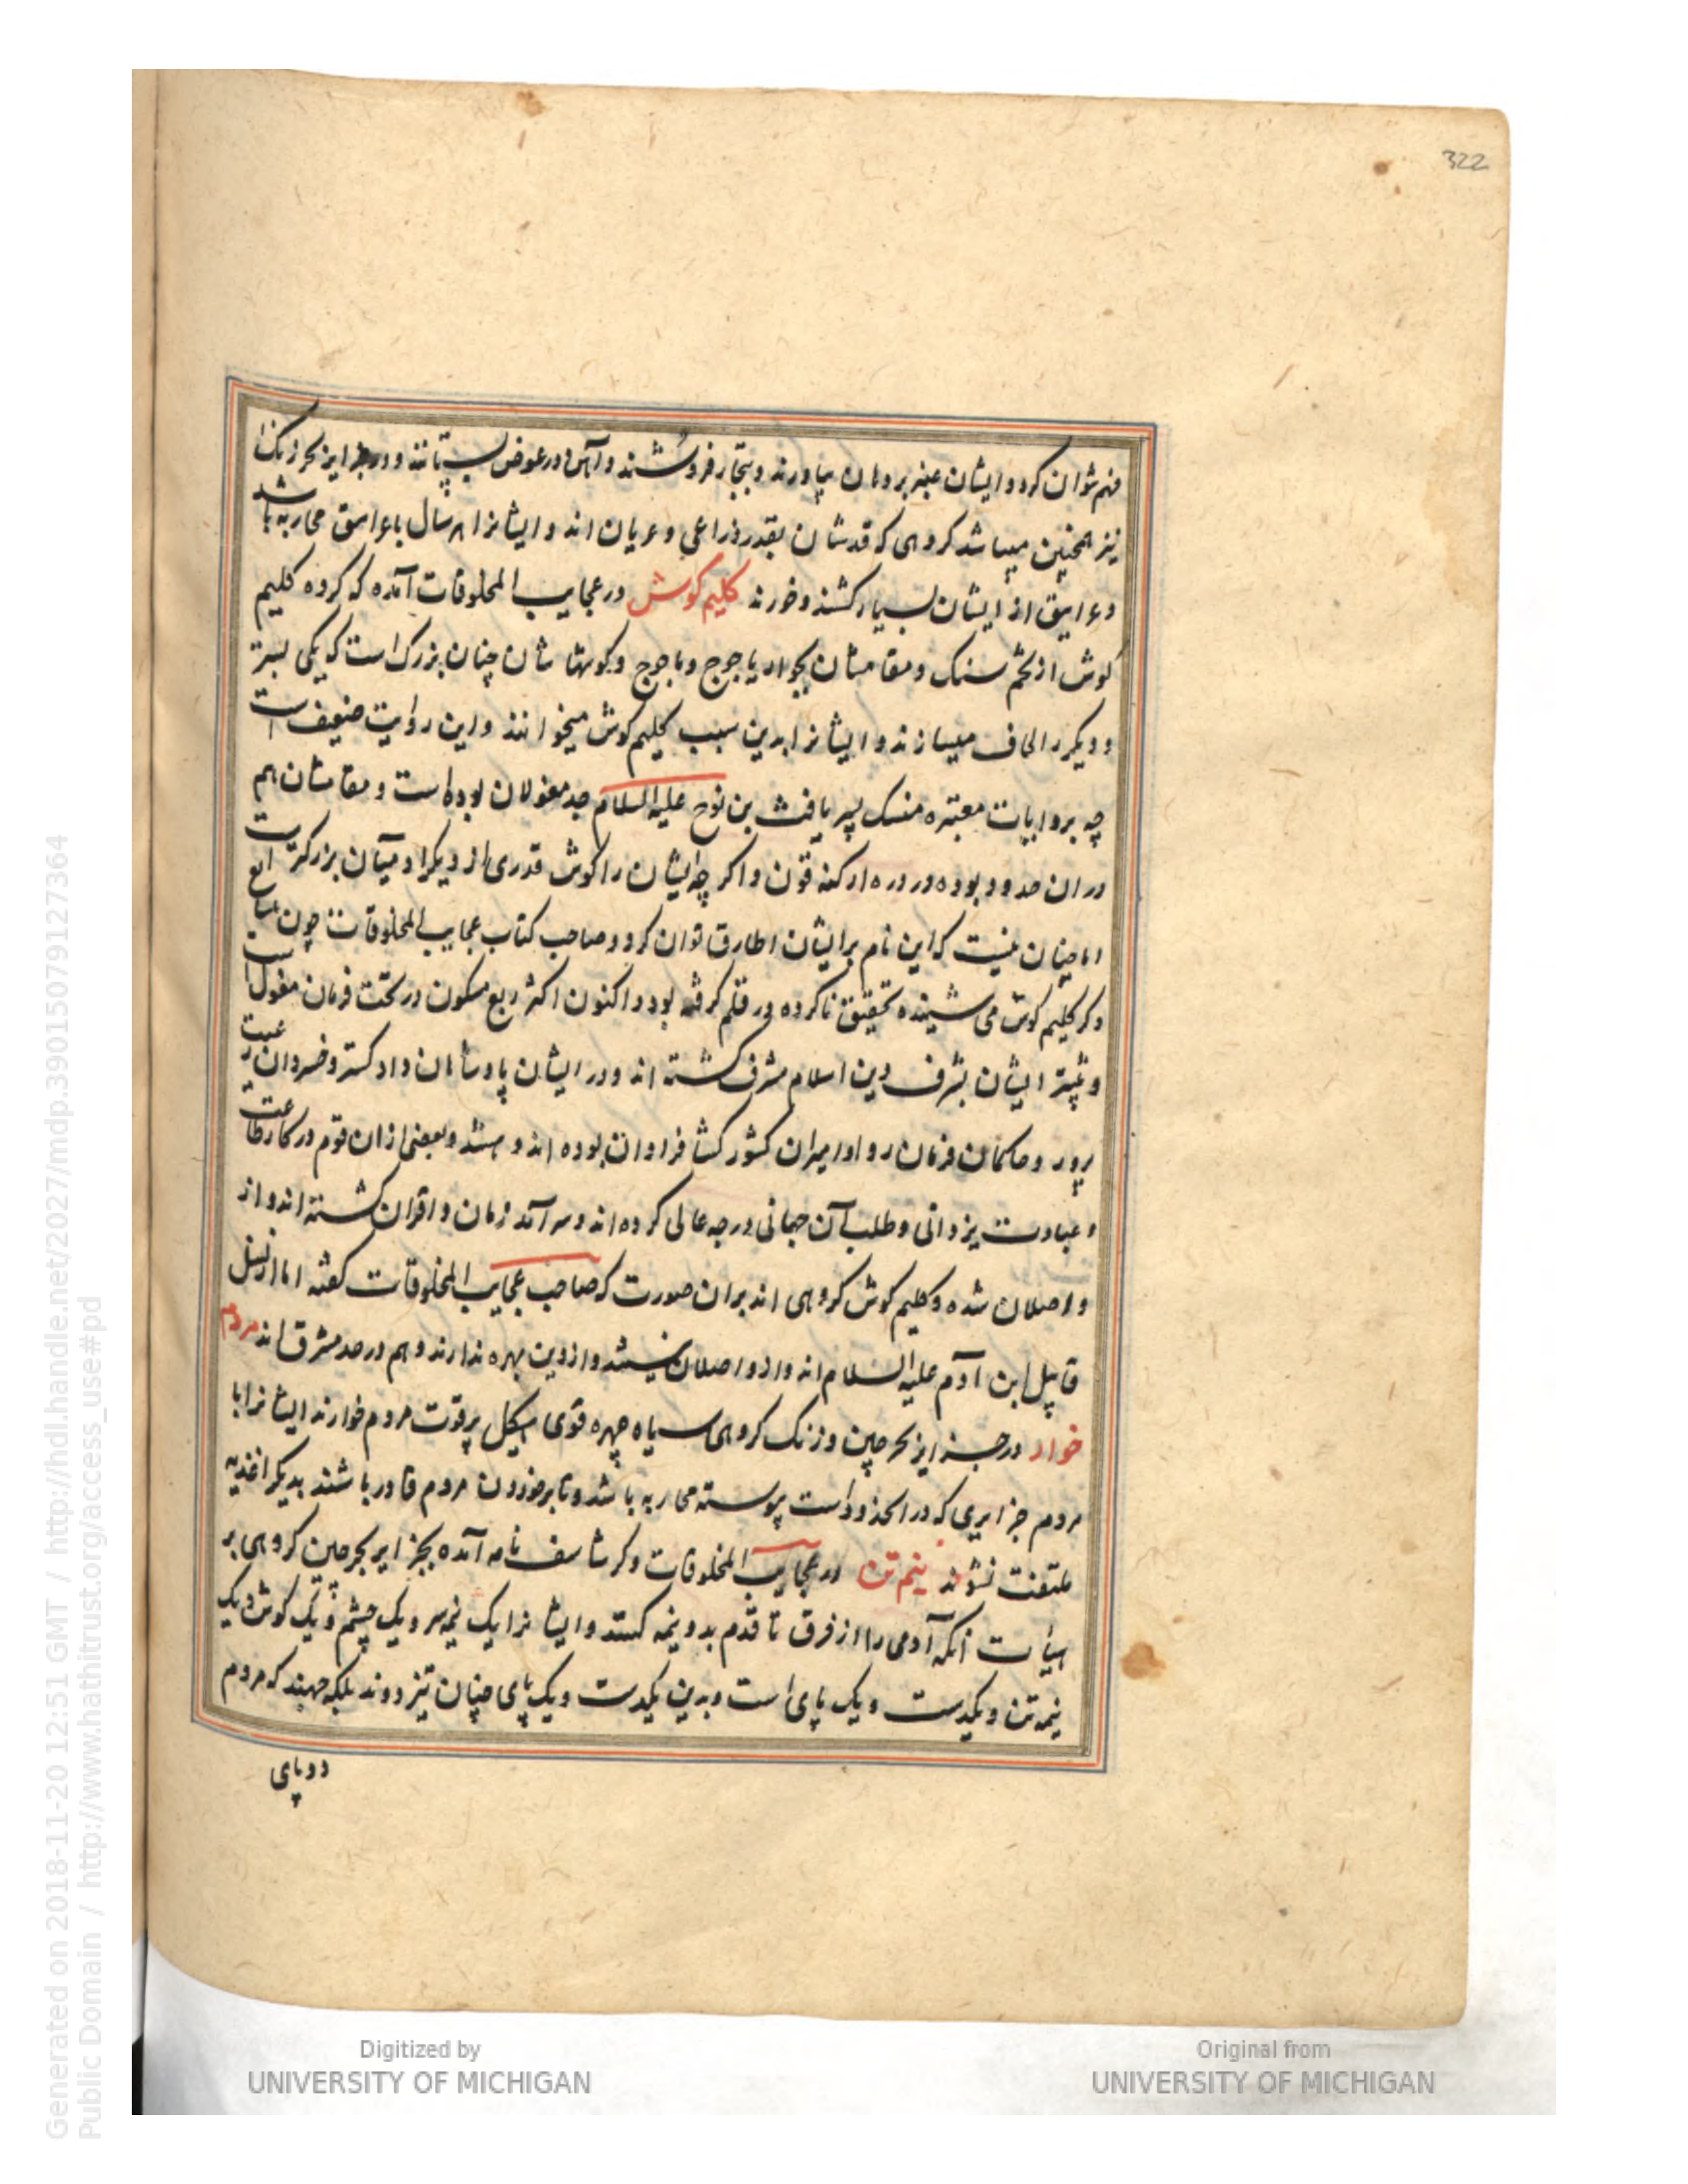 322
فهم نتوان کرد و ایشان عنبر بروهان بیاورند و بتجار فروشند و آهن در عوض بستانند و در جزایر بحر زنک
نیز همچنین میباشد کروهی که قدشان بقدر ذراعی و عریان اند و ایشانرا هر سال با غرانیق محاربه باشد
و غرانیق از ایشان بسیار کشند و خورند کلیم کوش در عجایب المخلوقات آمده که کروه کلیم
کوش از تخم منسک و مقامشان بجوار یاجوج و ماجوج و کوشها شان چنان بزرک است که یکی بستر
و دیکر را لحاف میسازند و ایشانرا بدین سبب کلیم کوش میخوانند و این روایت ضعیف است
چه بروایات معتبره منسک پسر یافث بن نوح علیه السلام جد مغولان بوده است و مقامشان هم
در ان حدود بوده و در ارکنه قون و اکر چه ایشان را کوش قدری از دیکر ادمیان بزرکتر است
اما چنان نیست که این نام بر ایشان اطلاق توان کرد و صاحب کتاب عجایب المخلوقات چون
ذکر کلیم کوش می شنیده تحقیق ناکرده در قلم کرفته بود و اکنون اکثر ربع مسکون در تحت فرمان مغول است
و بیشتر ایشان بشرف دین اسلام مشرف کشته اند و در ایشان پادشاهان دادکستر و خسروان رعیت
پرور و حاکمان فرمان روا و امیران کشور کشا فراوان بوده اند و هستند و بعضی از ان قوم در کار طاعت
و عبادت یزدانی و طلب آن جهانی درجه عالی کرده اند و سرآمد زمان و اقران کشته اند و از
واصلان شده و کلیم کوش کروهی اند بران صورت که صاحب عجایب المخلوقات کفته اما از نسل
قابیل ابن آدم علیه السلام اند و از واصلان نیستند و از دین بهره ندارند و هم در حد مشرق اند مردم
خوار در جزایر بحر چین و زنک کروهی سیاه چهره قوی هیکل پر قوت مردم خوارند ایشانرا با
مردم جزایری که در الحدود است پیوسته محاربه باشد و تا بر خوردن مردم قادر باشند بدیکر اغذیه
ملتفت نشوند نیم تن در عجایب المخلوقات و کرشاسف نامه آمده بجزایر بحر چین کروهی بر
هیات آنکه آدمی را از فرق تا قدم بدو نیمه کنند و ایشانرا یک نیمه سر و یک چشم و یک کوش و یک
نیمه تن و یکدست و یک پای است و بدین یکدست و یک پای چنان تیز دوند بلکه جهند که مردم
دو پای
Generated on 2018-11-20 12:51 GMT / http://hdl.handle.net/2027/mdp.39015079127364
Public Domain / http://www.hathitrust.org/access_use#pd
Digitized by
UNIVERSITY OF MICHIGAN
Original from
UNIVERSITY OF MICHIGAN